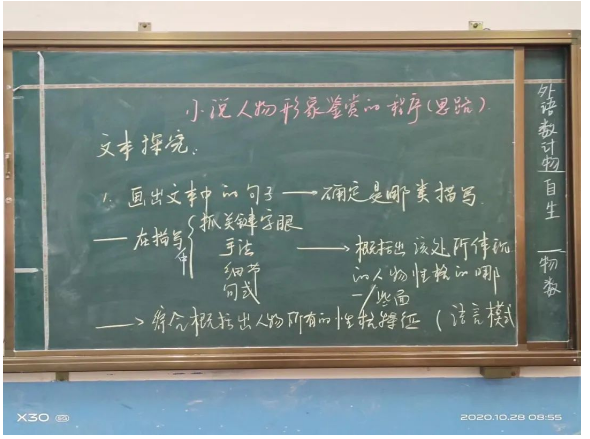 小说人物形象鉴赏的程序(思路).
文本探究:
1. 画出文本中的句子 ——→ 确定是哪类描写.
—— 在描写中 { 抓关键字眼
手法 ——→ 概括出该处所体现
细节 的人物性格的哪
句式 一/些面
——→ 综合概括出人物所有的性格特征 ( 语言模式
外语数计物自生 物数
X30
2020.10.28 08:55